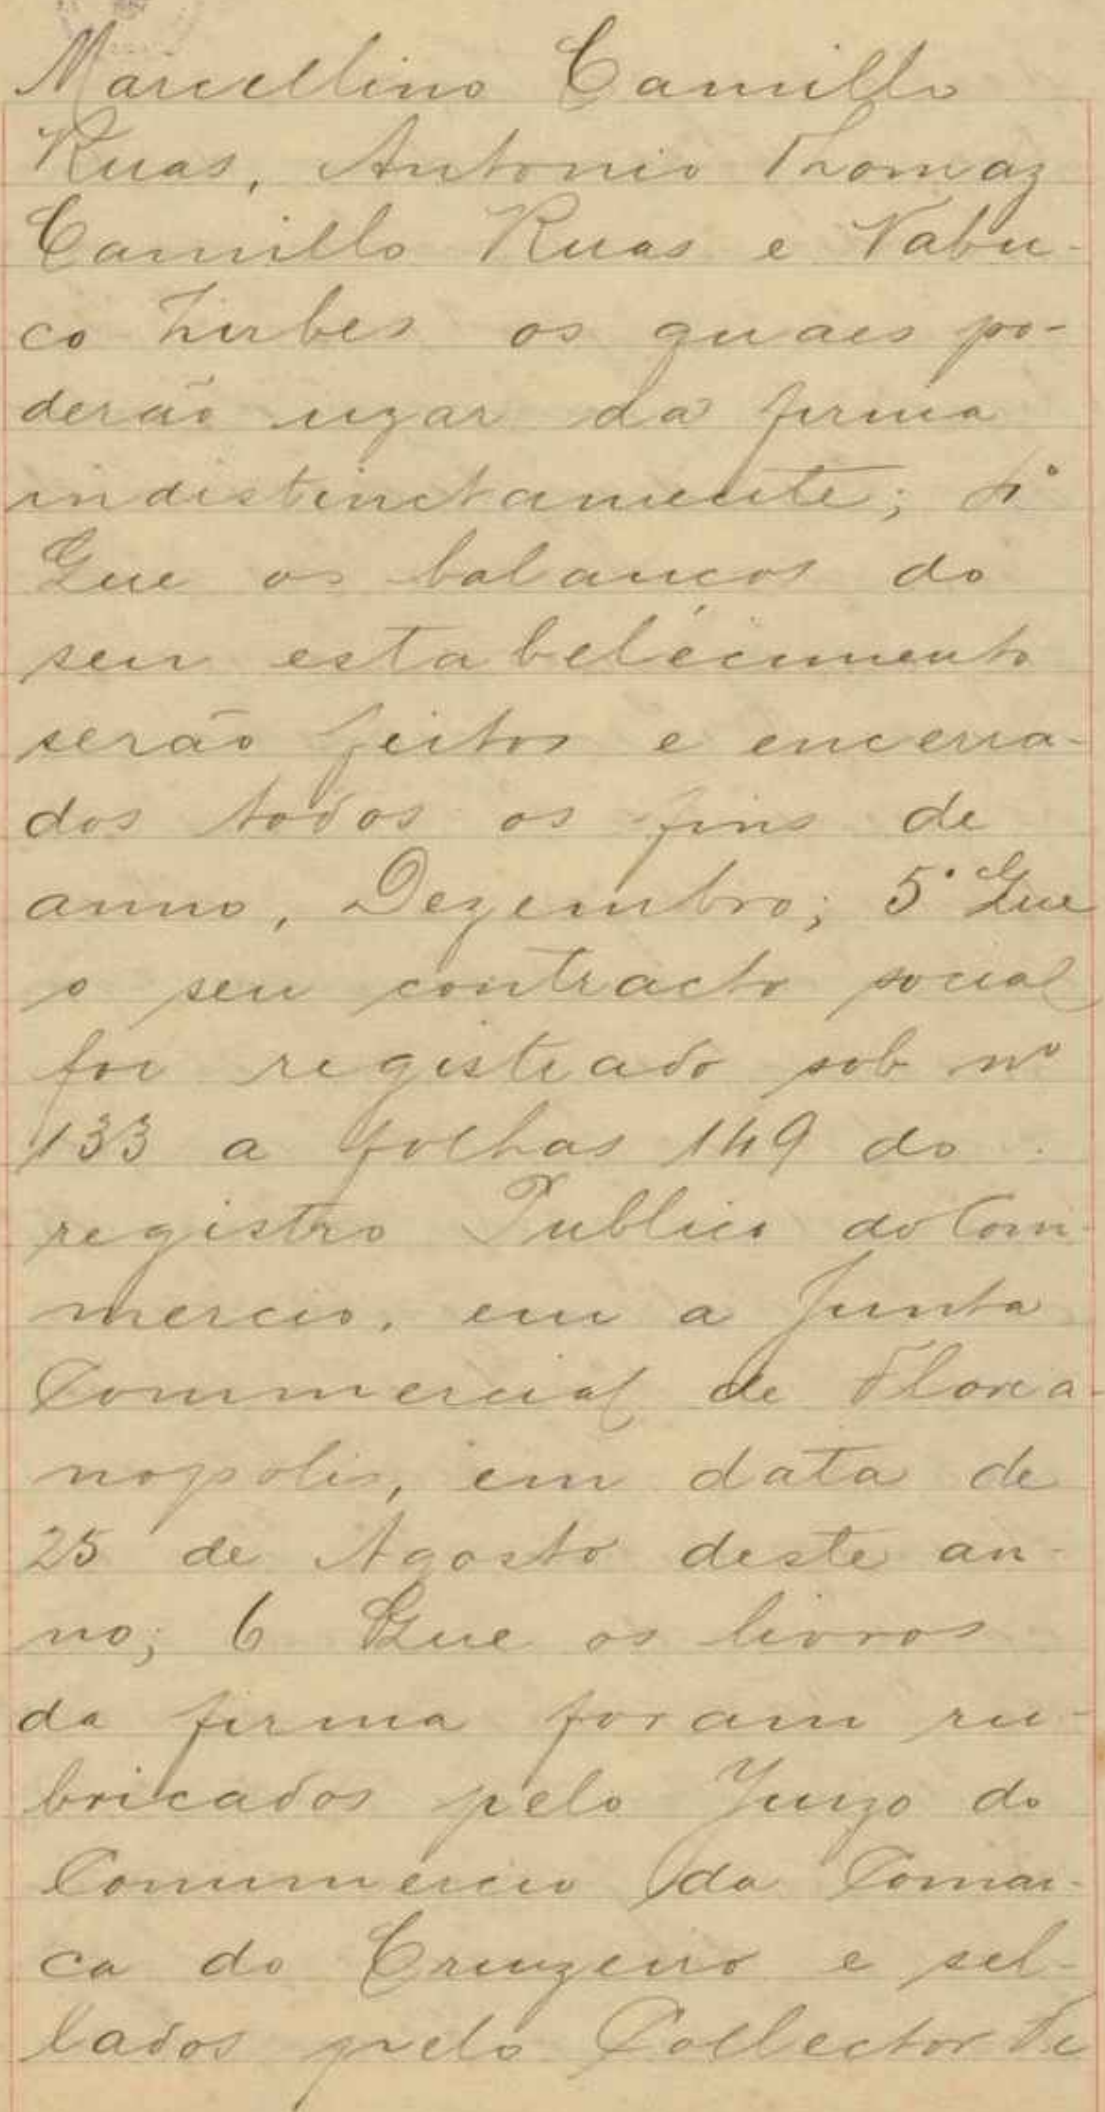 Marcellino Camillo
Ruas, Antonio Thomaz
Camillo Ruas e Nabu-
co Zirbes os quaes po-
derão uzar da firma
indistinctamente; 4º
Que os balanços do
seu estabelecimento
serão feitos e encerra-
dos todos os fins de
anno, Dezembro; 5º Que
o seu contracto social
foi registrado sob nº
133 a folhas 149 do
registro Publico do Com-
mercio, em a Junta
Commercial de Floria-
nopolis, em data de
25 de Agosto deste an-
no; 6 Que os livros
da firma foram ru-
bricados pelo Juizo do
Commercio da Comar-
ca do Cruzeiro e sel-
lados pelo Collector Fe